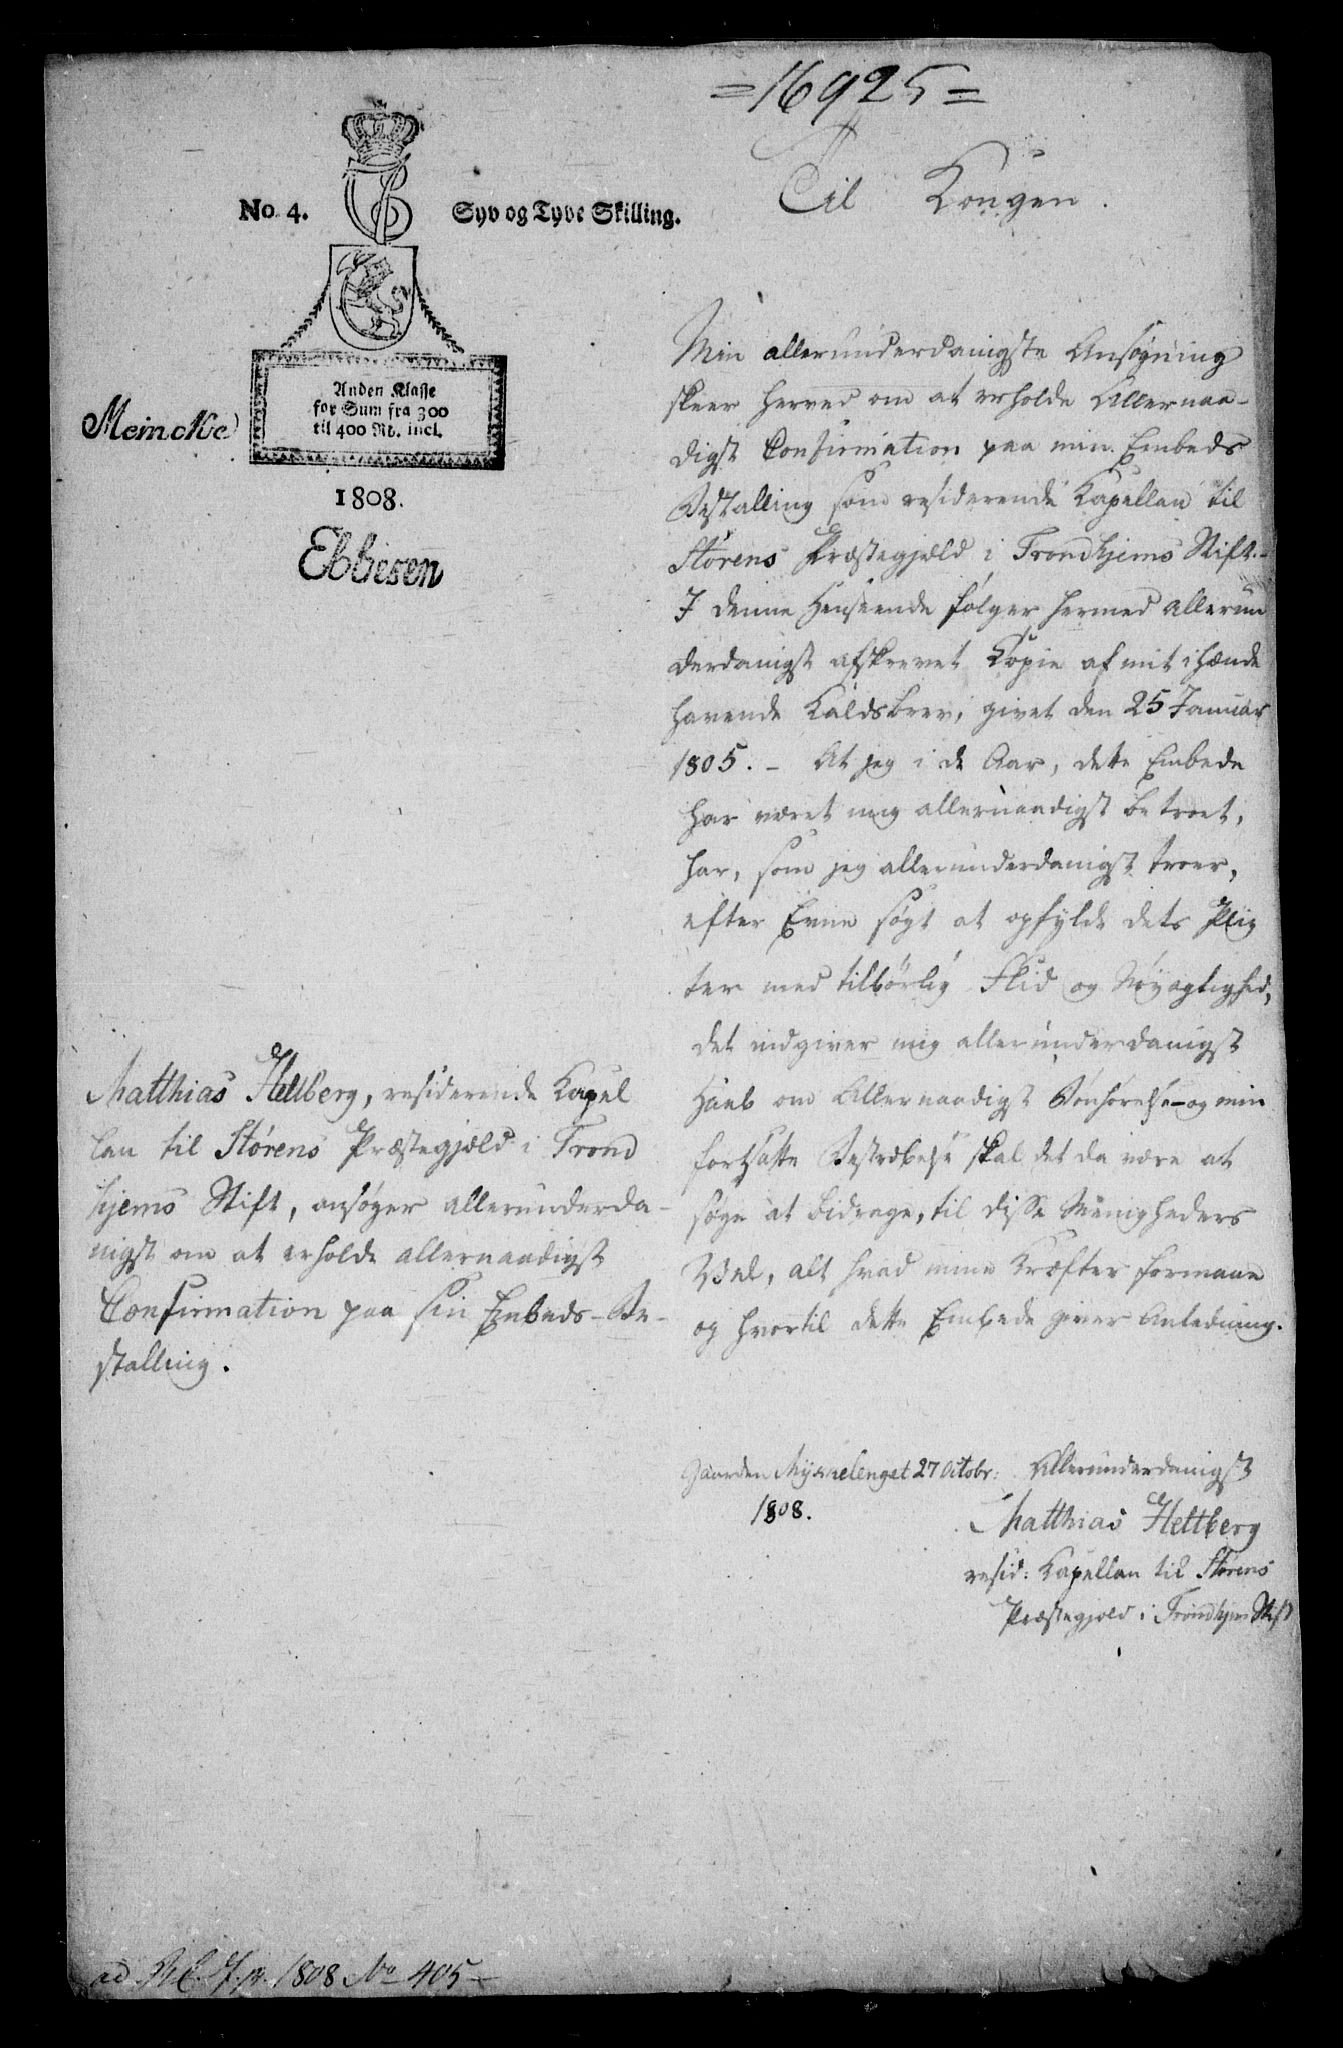 =16925=
Til Kongen.
No. 4. Syv og Tyve Skilling.
Anden Klasse
for Sum fra 300
til 400 Rd. incl.
Meincke
1808.
Ebbesen
Min allerunderdanigste Ansøgning
skeer herved om at erholde Allernaa-
digst Confirmation paa min Embeds
Bestalling som residerende Kapellan til
Størens Præstegjæld i Trondhjems Stift.-
I denne Henseende følger hermed allerun
derdanigst afskrevet Kopie af mit ihænde
havende Kaldsbrev, givet den 25 Januar
1805. - At jeg i de Aar, dette Embede
har været mig allernaadigst betroet,
har, som jeg allerunderdanigst troer,
efter Evne søgt at opfylde dets Plig
ter med tilbørlig Flid og Nøyagtighed,
det indgiver mig allerunderdanigst
Haab om Allernaadigst Bønhørelse - og min
fortsatte Bestræbelse skal det da være at
søge at bidrage, til disse Menigheders
Vel, alt hvad mine Kræfter formaae
og hvortil dette Embede giver Anledning.
Matthias Heltberg, residerende Kapel
lan til Størens Præstegjæld i Trond
hjems Stift, ansøger allerunderda-
nigst om at erholde allernaadigst
Confirmation paa sin Embeds-Be-
stalling.
Gaarden 27 Octobr: Allerunderdanigst
1808.
Matthias Heltberg
resid: Kapellan til Størens
Præstegjæld i Trondhjems Stift
ad 1808 No 405-